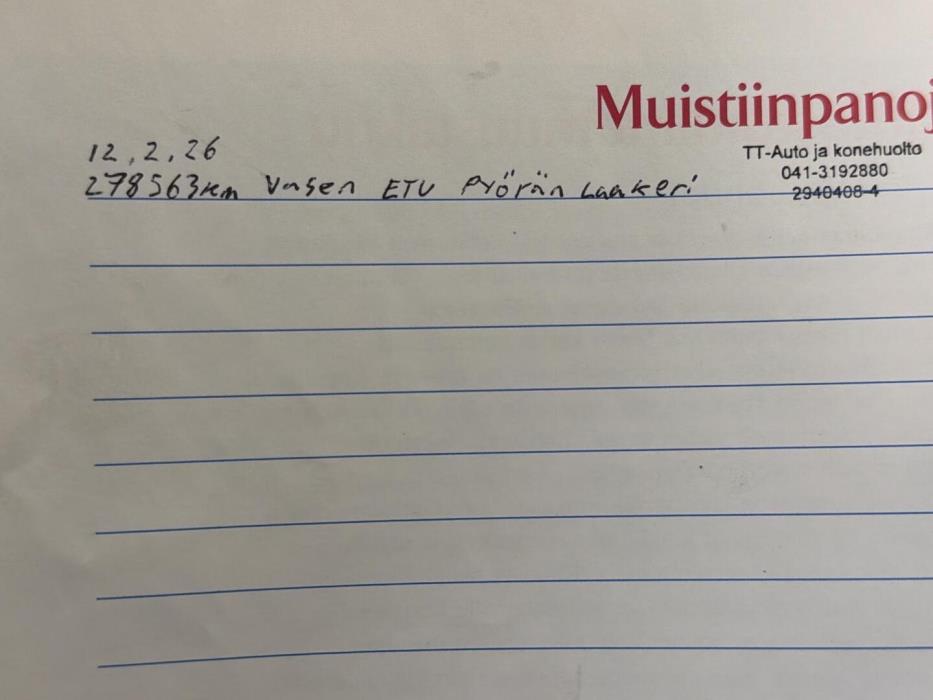 Muistiinpanoj
TT-Auto ja konehuolto
041-3192880
2940408-4
12,2,26
278563km Vasen ETU Pyörän Laakeri